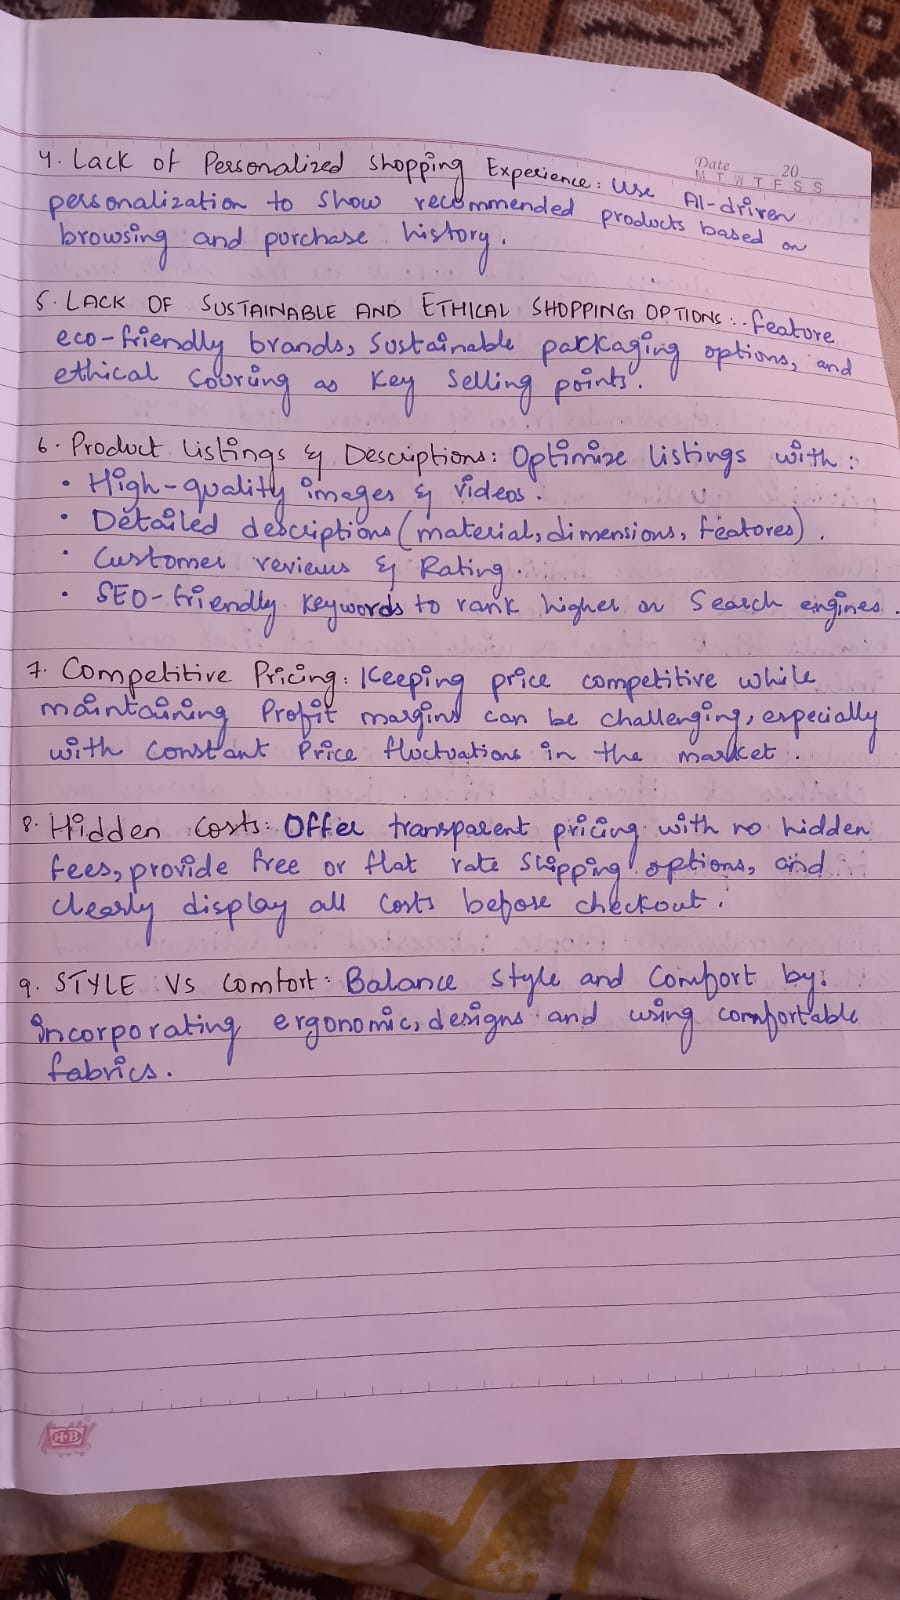 Date 20
M T W T F S S
4. Lack of Personalized Shopping Experience: Use AI-driven
personalization to show recommended products based on
browsing and purchase history.
5. LACK OF SUSTAINABLE AND ETHICAL SHOPPING OPTIONS: Feature
eco-friendly brands, sustainable packaging options, and
ethical sourcing as key selling points.
6. Product Listings & Descriptions: Optimize listings with:
• High-quality images & videos.
• Detailed descriptions (material, dimensions, features).
• Customer reviews & Rating.
• SEO-friendly keywords to rank higher on Search engines.
7. Competitive Pricing: Keeping price competitive while
maintaining Profit margins can be challenging, especially
with constant Price fluctuations in the market.
8. Hidden Costs: Offer transparent pricing with no hidden
fees, provide free or flat rate shipping options, and
clearly display all costs before checkout.
9. STYLE Vs Comfort: Balance style and comfort by:
incorporating ergonomic, designs and using comfortable
fabrics.
HB